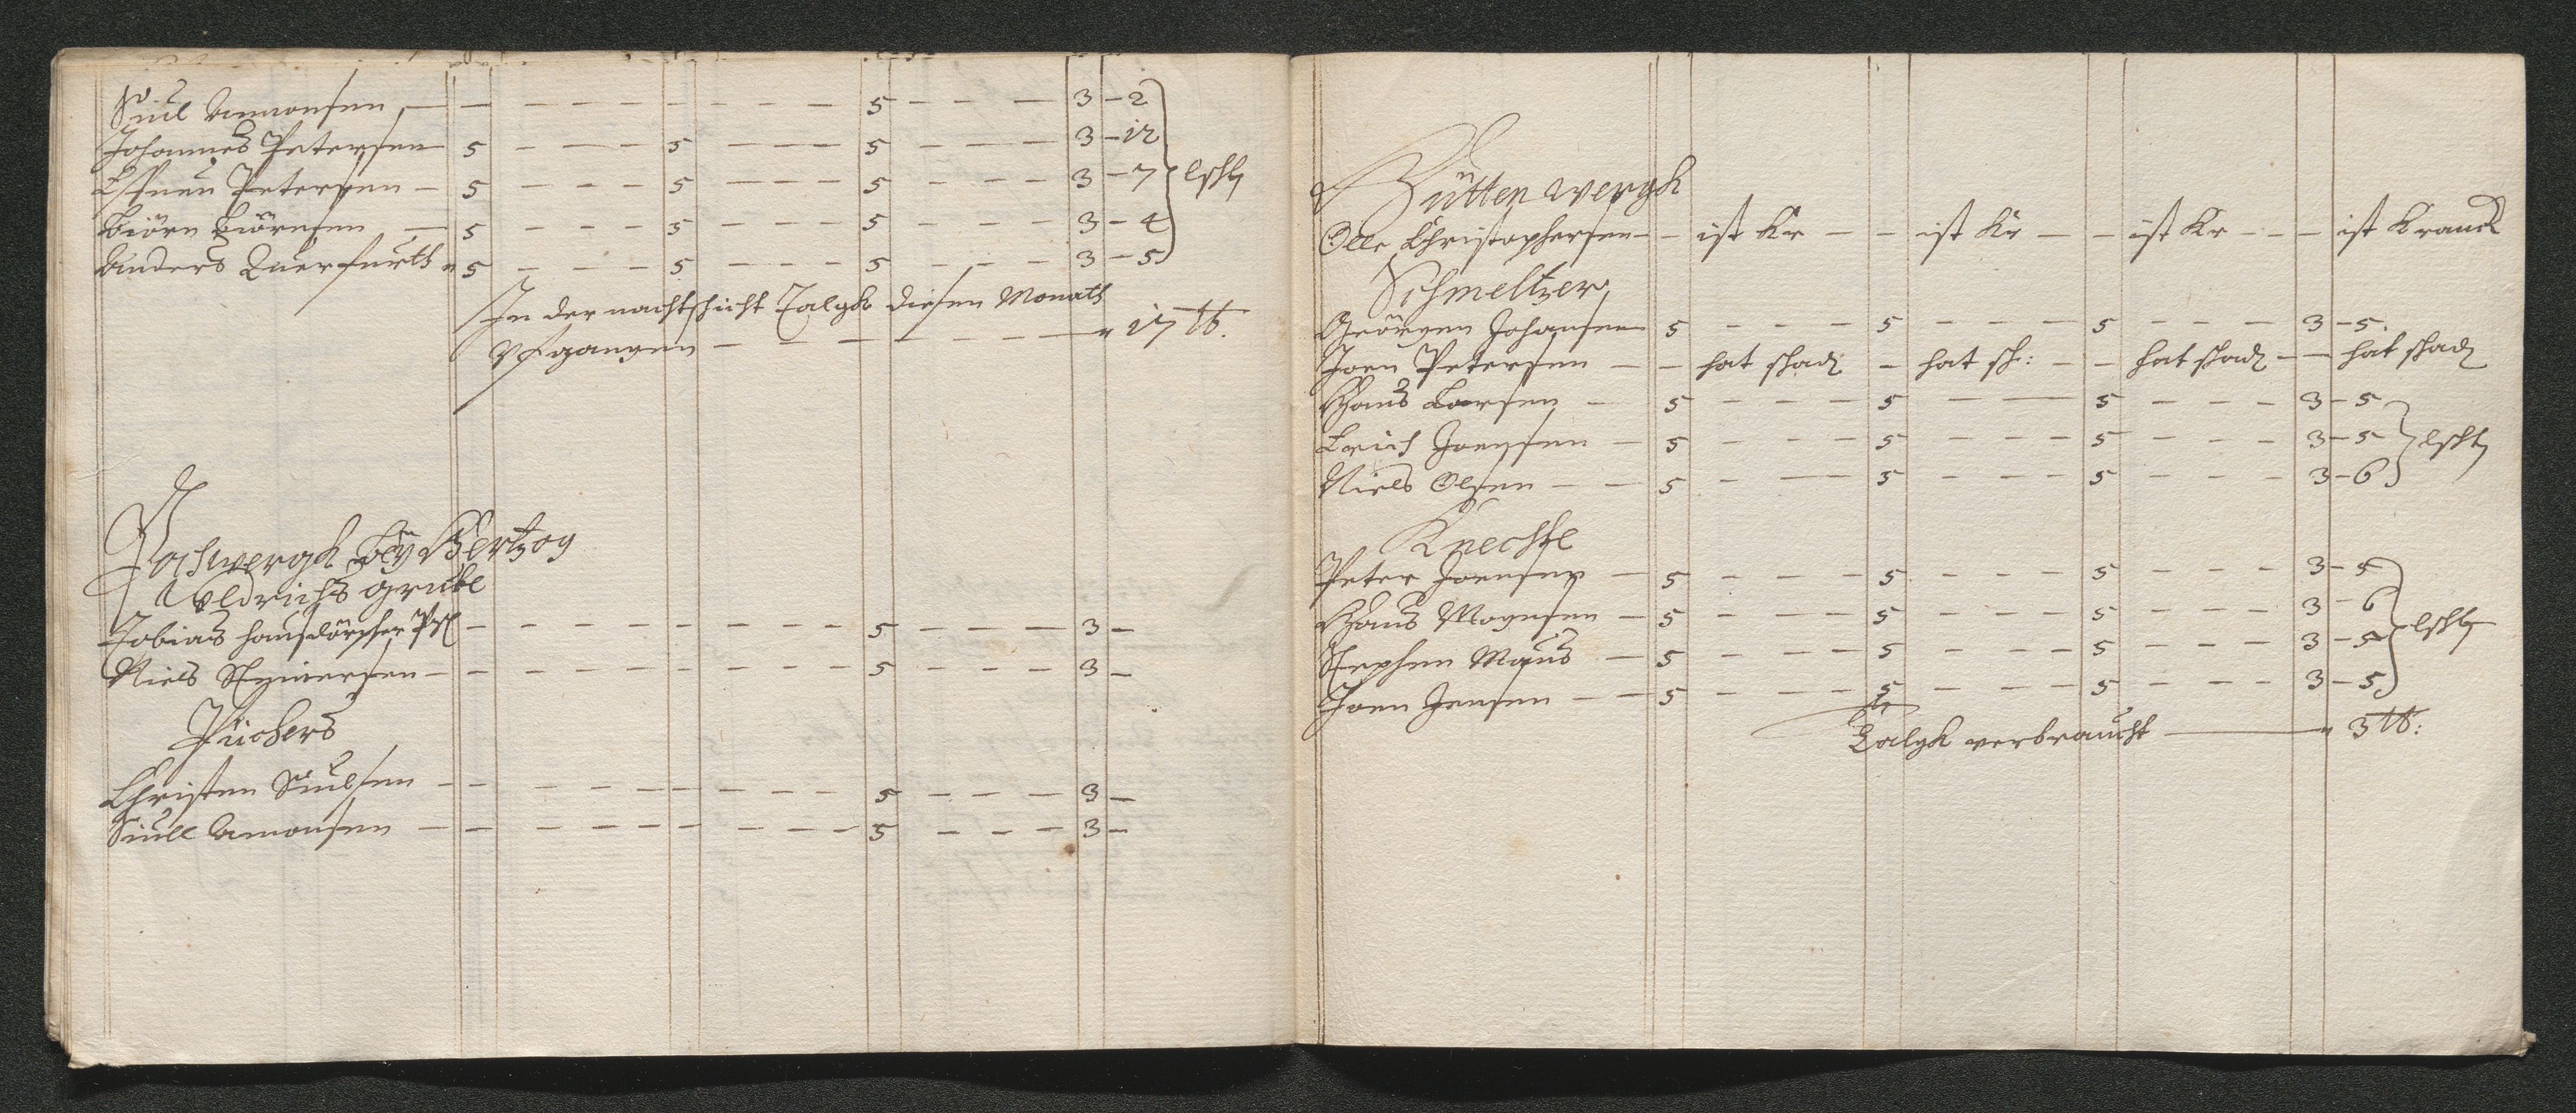 Siul Amonsen — — — — — — — — 5 — — — 3 — 2
Johannes Petersen 5 — — — 5 — — — 5 — — — 3 — 12
Petersen — 5 — — — 5 — — — 5 — — — 3 — 7 lßht
Biörn Biörnsen — 5 — — — 5 — — — 5 — — — 3 — 4
Anders Querfurth 5 — — — 5 — — — 5 — — — 3 — 5
In der nachtschicht Talgk diesen Monath
Vfgangen — — — — — — 17 ℔.
Pochwergk bey Hertzog
Uldrichs grube
Tobias hausdörpher — — — — — — — — 5 — — — 3 —
Niels — — — — — — — — 5 — — — 3 —
Püchers
Christen Siulsen — — — — — — — — 5 — — — 3 —
Siull Amonsen — — — — — — — — 5 — — — 3 —
Hütten wergk
Olle Christophersen — — ist Kr — — ist Kr — — ist Kr — — — ist Kranck
Schmeltzer
Geörgen Johansen 5 — — — 5 — — — 5 — — — 3 — 5.
Joen Petersen — — hat schad — hat sch: — — hat schad — — hat schad
Hans Larsen — 5 — — — 5 — — — 5 — — — 3 — 5
Erich Joenssen — 5 — — — 5 — — — 5 — — — 3 — 5 lßht
Niels Olsen — — 5 — — — 5 — — — 5 — — — 3 — 6
Knechte
Peter Joensen — 5 — — — 5 — — — 5 — — — 3 — 5
Hans Mognsen — 5 — — — 5 — — — 5 — — — 3 — 6
Stephen Maus — 5 — — — 5 — — — 5 — — — 3 — 5 lßht
Joen Jensen — — 5 — — — 5 — — — 5 — — — 3 — 5
Talgk verbraucht — 3 ℔: